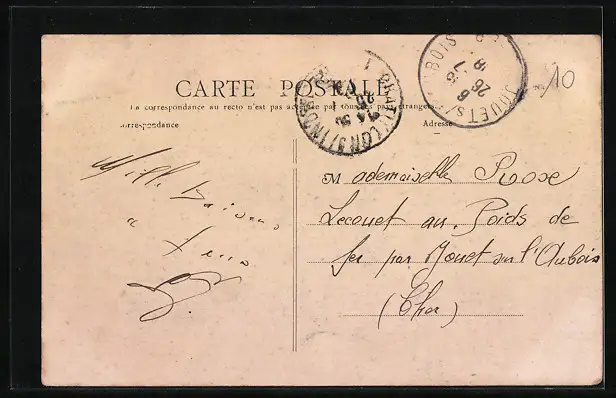 CARTE POSTALE
La correspondance au recto n'est pas acceptée par tous les pays étrangers
Correspondance
Adresse
10
Mille Baisers
a tous
Mademoiselle Rose
Lecouet au Poids de
fer par Jouet sur l'Aubois
(Cher)